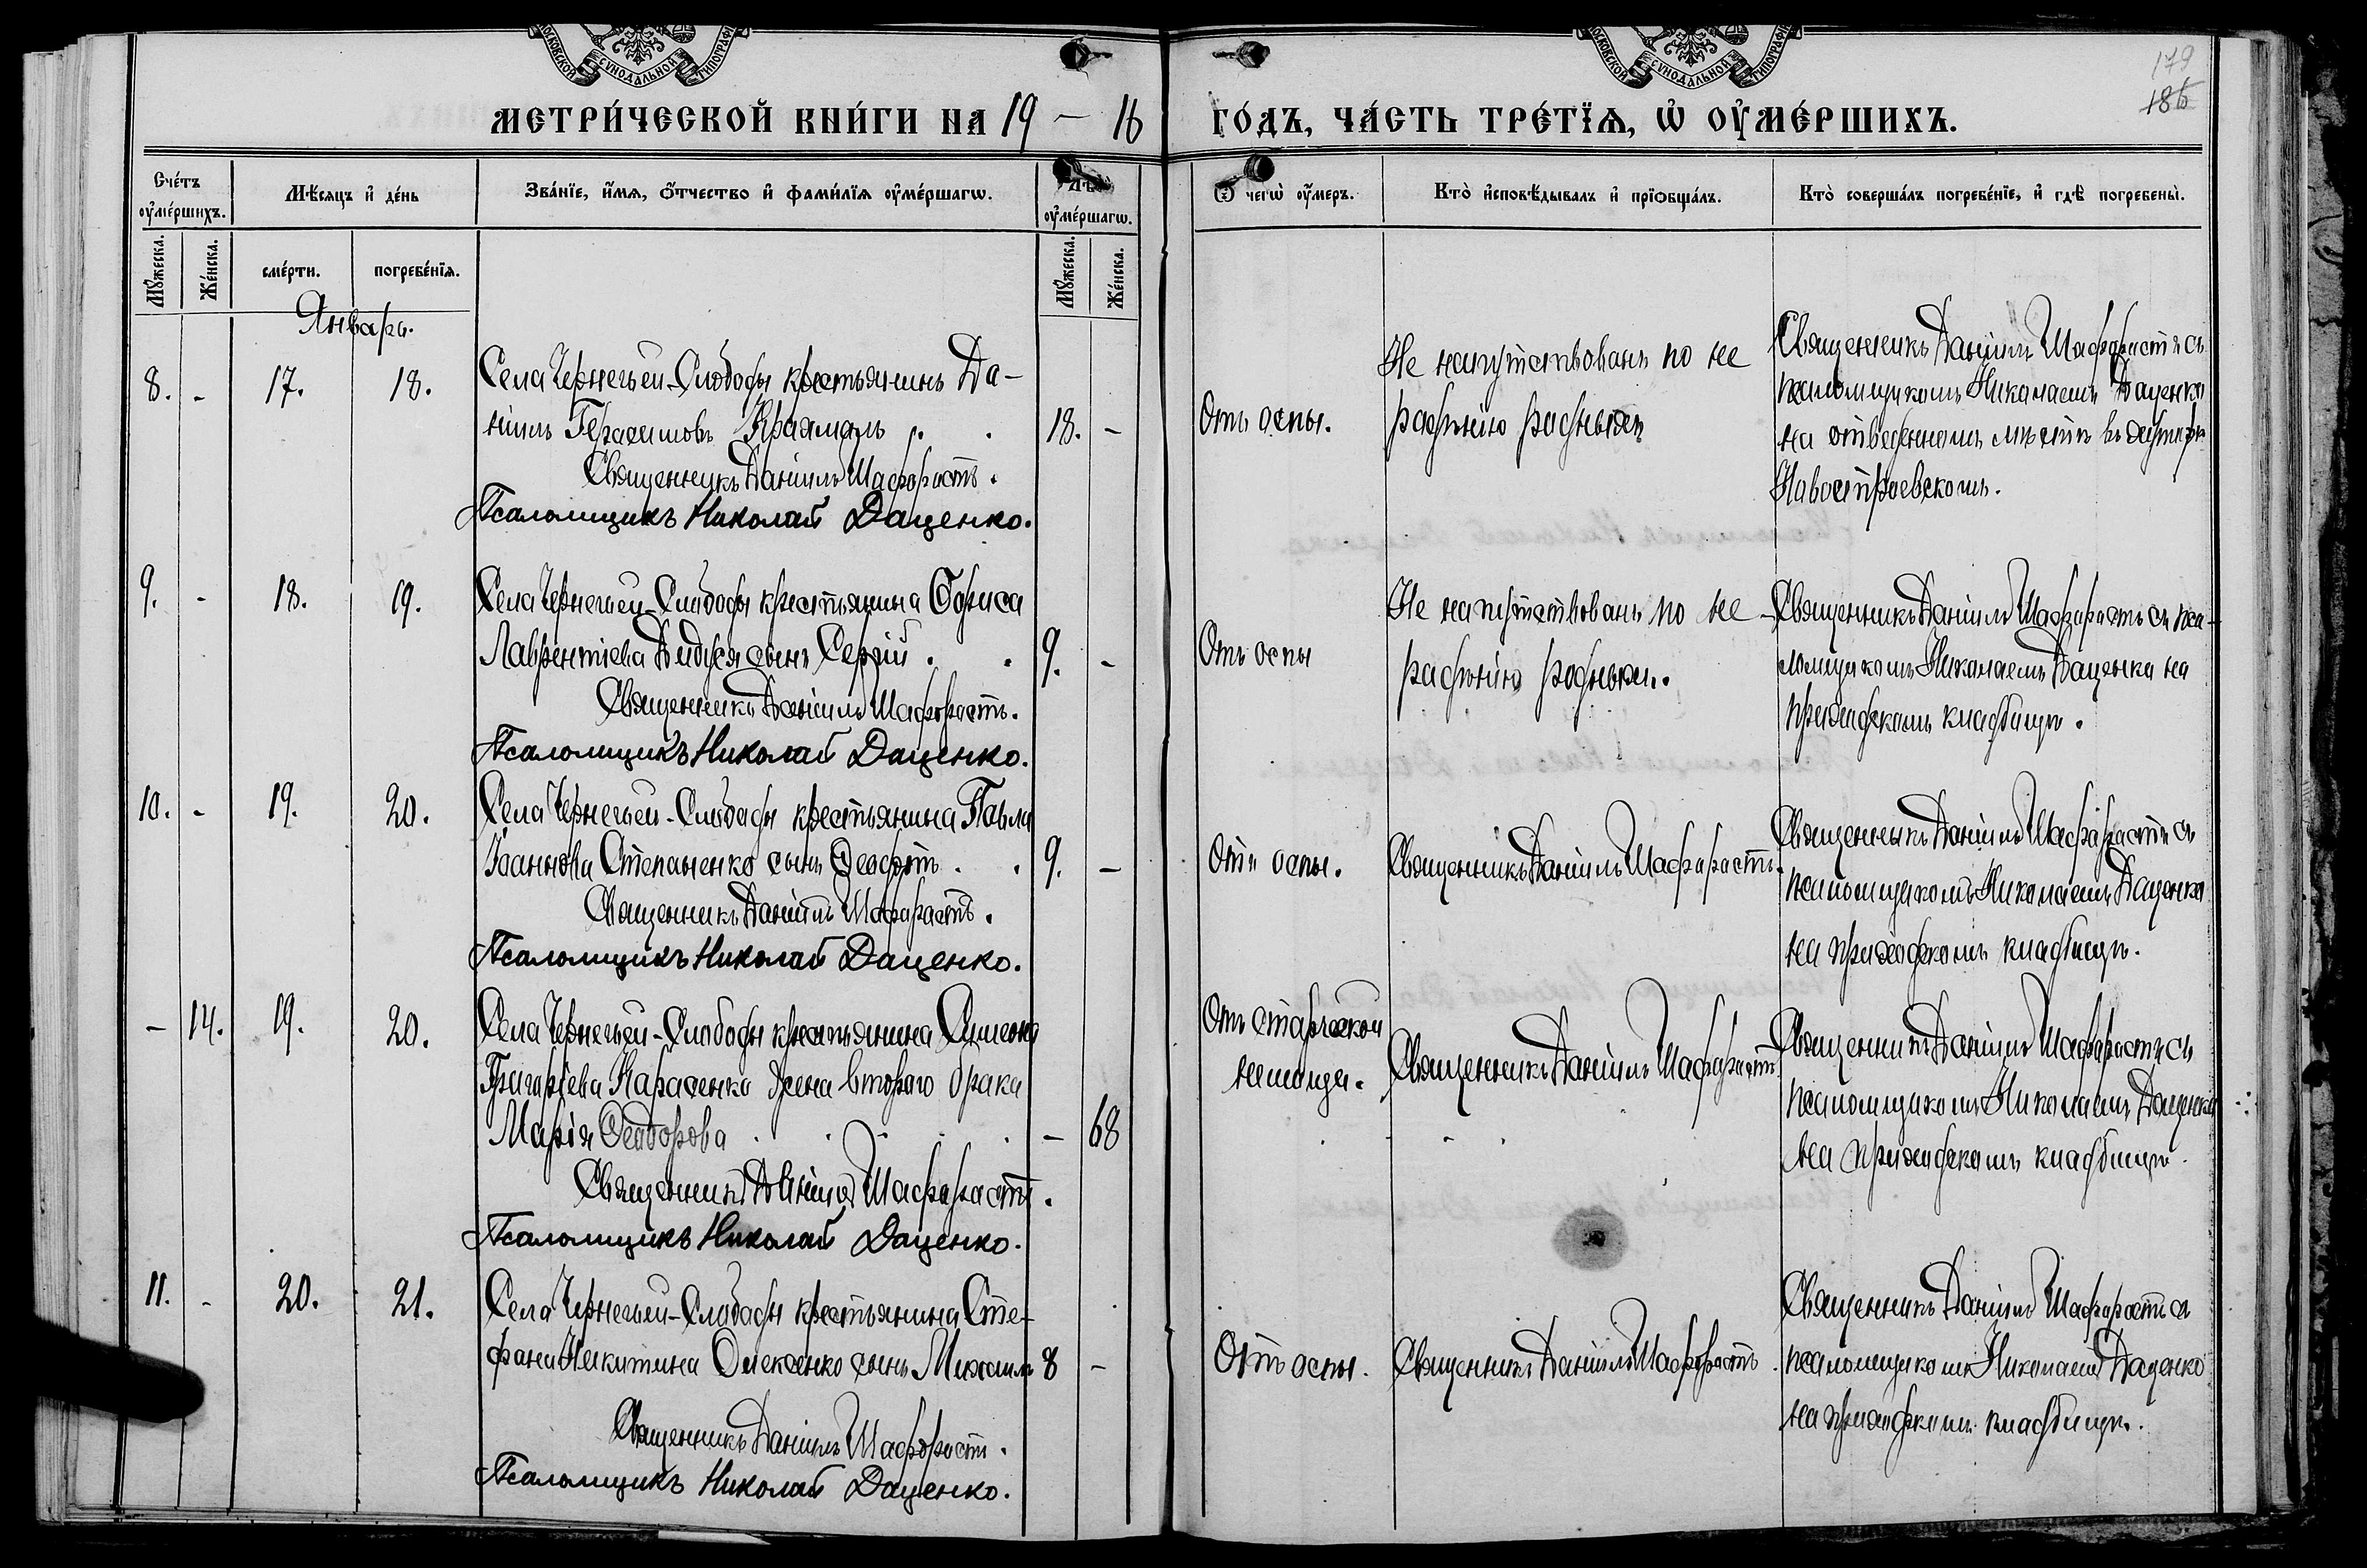 МОСКОВСКОЙ СѴНОДАЛЬНОЙ ТИПОГРАФІИ
МОСКОВСКОЙ СѴНОДАЛЬНОЙ ТИПОГРАФІИ
179
186
МЕТРИ́ЧЕСКОЙ КНИ́ГИ НА 19 – 16 ГО́ДЪ, ЧА́СТЬ ТРЕ́ТЇѦ, Ѡ҆ ОУ҆МЕ́РШИХЪ.
Сче́тъ оу҆ме́ршихъ.
Мѣ́сяцъ и҆ де́нь
Зва́нїе, и҆́мѧ, ѻ҆́тчество и҆ фами́лїѧ оу҆ме́ршагѡ.
Лѣ́
оу҆ме́ршагѡ.
Ѿ чегѡ̀ оу҆́меръ.
Кто̀ и҆сповѣ́дывалъ и҆ прїѻбща́лъ.
Кто̀ соверша́лъ погребе́нїе, и҆ гдѣ̀ погребены̀.
Мꙋ́жеска.
Же́нска.
сме́рти.
погребе́нїѧ.
Мꙋ́жеска.
Же́нска.
Январь.
8. - 17. 18.
Села Чернечьей-Слободы крестьянинъ Да-
ніилъ Герасимовъ . . 18. -
Священникъ Даніилъ Шафоростъ.
Псаломщикъ Николай Даценко.
Отъ оспы.
Не напутствованъ по не
радѣнію родныхъ
Священникъ Даніилъ Шафоростъ съ
псаломщикомъ Николаемъ Даценко
на отведенномъ мѣстѣ въ хуторѣ
Новостроевскомъ.
9. - 18. 19.
Села Чернечьей-Слободы крестьянина Бориса
Лаврентіева сынъ Сергій . . 9. -
Священникъ Даніилъ Шафоростъ.
Псаломщикъ Николай Даценко.
Отъ оспы
Не напутствованъ по не-
радѣнію родныхъ.
Священникъ Даніилъ Шафоростъ съ пса-
ломщикомъ Николаемъ Даценко на
приходскомъ кладбищѣ.
10. - 19. 20.
Села Чернечьей-Слободы крестьянина Павла
Іоаннова Степаненко сынъ . . 9. -
Священникъ Даніилъ Шафоростъ.
Псаломщикъ Николай Даценко.
Отъ оспы.
Священникъ Даніилъ Шафоростъ.
Священникъ Даніилъ Шафоростъ съ
псаломщикомъ Николаемъ Даценко
на приходскомъ кладбищѣ.
- 14. 19. 20.
Села Чернечьей-Слободы крестьянина Симеона
Григоріева Карасенко жена втораго брака
Марія Ѳеодорова . . . . - 68
Священникъ Даніилъ Шафоростъ.
Псаломщикъ Николай Даценко.
Отъ старческой
немощи.
Священникъ Даніилъ Шафоростъ
Священникъ Даніилъ Шафоростъ съ
псаломщикомъ Николаемъ Даценко
на приходскомъ кладбищѣ.
11. - 20. 21.
Села Чернечьей-Слободы крестьянина Сте-
фана Никитина Олексенко сынъ Михаилъ 8 -
Священникъ Даніилъ Шафоростъ.
Псаломщикъ Николай Даценко.
Отъ оспы.
Священникъ Даніилъ Шафоростъ.
Священникъ Даніилъ Шафоростъ съ
псаломщикомъ Николаемъ Даценко
на приходскомъ кладбищѣ.